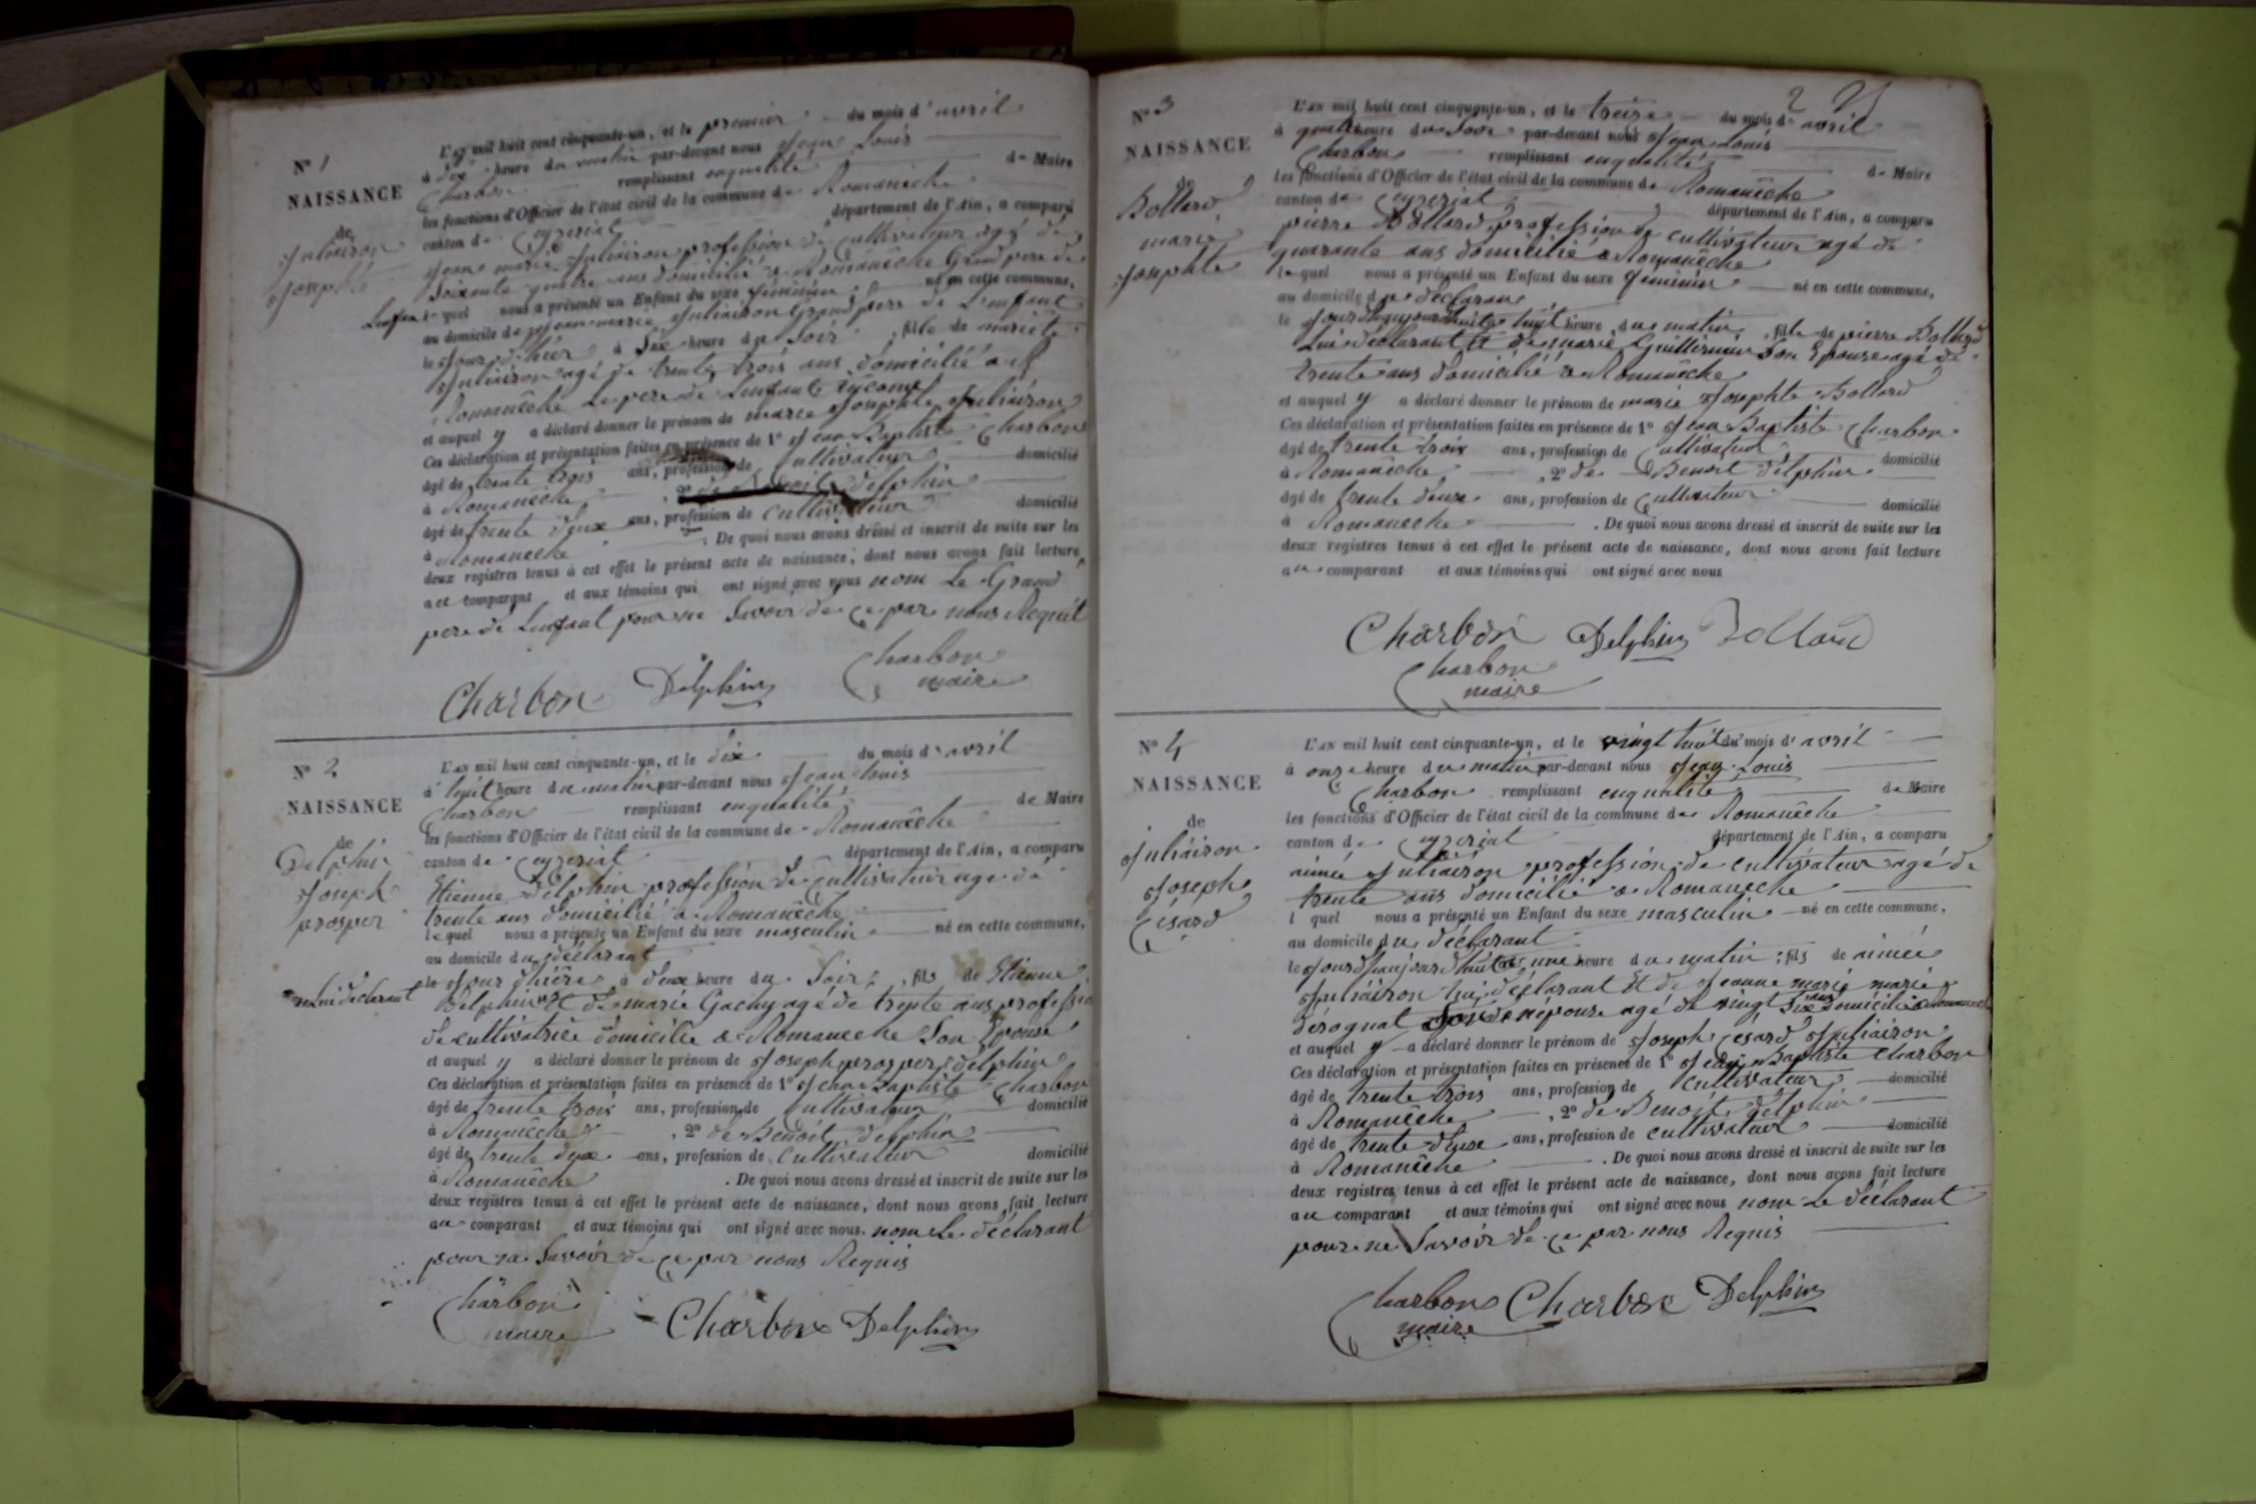 N° 1
NAISSANCE
de
Juliairon
Josephte
L'an mil huit cent cinquante-un, et le premier du mois d'avril
à dix heure du matin par-devant nous Jean Louis
Charbon remplissant enqualité de Maire
les fonctions d'Officier de l'état civil de la commune de Romanêche
canton de Ceyzeriat département de l'Ain, a comparu
Jean marie Juliairon profession de Cultivateur agé de
soixante quatre ans domicilié à Romanêche Grand pere de
Lenfan lequel nous a présenté un Enfant du sexe féminin né en cette commune,
au domicile de Jean marie Juliairon Grand pere de Lenfant
le Jour d'hier à Six heure du Soir, fille de mariette
Juliairon agé de trente trois ans domicilié a
Romanêche Le pere de Lenfant
et auquel y a déclaré donner le prénom de marie Josephte Juliairon
Ces déclaration et présentation faites en présence de 1° Jean Baptiste Charbon
âgé de trente trois ans, profession de Cultivateur domicilié
à Romanêche, 2° de Benoit delphin
âgé de trente deux ans, profession de cultivateur domicilié
à Romanêche. De quoi nous avons dressé et inscrit de suite sur les
deux registres tenus à cet effet le présent acte de naissance, dont nous avons fait lecture
au comparant et aux témoins qui ont signé avec nous nom Le Grand
pere de Lenfant pour ne Savoir de ce par nous Requit
Charbon Delphin Charbon
maire
N° 2
NAISSANCE
de
Delphin
Joseph
prosper
L'an mil huit cent cinquante-un, et le dix du mois d'avril
à huit heure du matin par-devant nous Jean Louis
Charbon remplissant enqualité de Maire
les fonctions d'Officier de l'état civil de la commune de Romanêche
canton de Ceyzeriat département de l'Ain, a comparu
Etienne Delphin profession de Cultivateur age de
trente ans domicilié à Romanêche
lequel nous a présenté un Enfant du sexe masculin né en cette commune,
au domicile du déclarant
le Jour dhière à deux heure du Soir, fils de Etienne
Delphin Et de marie Gachy agé de trente ans professio
de cultivatrice domicilie a Romanêche Son Epouse
et auquel y a déclaré donner le prénom de Joseph prosper delphin
Ces déclaration et présentation faites en présence de 1° Jean Baptiste Charbon
âgé de trente trois ans, profession de Cultivateur domicilié
à Romanêche, 2° de Benoit delphin
âgé de trente deux ans, profession de Cultivateur domicilié
à Romanêche. De quoi nous avons dressé et inscrit de suite sur les
deux registres tenus à cet effet le présent acte de naissance, dont nous avons fait lecture
au comparant et aux témoins qui ont signé avec nous. nom Le déclarant
pour ne Savoir de ce par nous Requis
Charbon
maire Charbon Delphin
2
N° 3
NAISSANCE
de
Bollard
marie
Josephte
L'an mil huit cent cinquante-un, et le treize du mois d'avril
à quatre heure du Soir par-devant nous Jean Louis
Charbon remplissant enqualité de Maire
les fonctions d'Officier de l'état civil de la commune de Romanêche
canton de Ceyzeriat département de l'Ain, a comparu
pierre Bollard profession de cultivateur agé de
quarante ans domicilié a Romanêche
lequel nous a présenté un Enfant du sexe feminin né en cette commune,
au domicile du declaran
le Jourdhaujourdhuit à huit heure du matin, fille de pierre Bollard
Lui déclarant Et de marie Guillermin Son Epouse agé de
trente ans domicilié a Romanêche
et auquel y a déclaré donner le prénom de marie Josephte Bollard
Ces déclaration et présentation faites en présence de 1° Jean Baptiste Charbon
âgé de trente trois ans, profession de Cultivateur domicilié
à Romanêche, 2° de Benoit delphin
âgé de trente deuxe ans, profession de Cultivateur domicilié
à Romanêche. De quoi nous avons dressé et inscrit de suite sur les
deux registres tenus à cet effet le présent acte de naissance, dont nous avons fait lecture
au comparant et aux témoins qui ont signé avec nous
Charbon Delphin Bollard
Charbon
maire
N° 4
NAISSANCE
de
Juliairon
Joseph
Césard
L'an mil huit cent cinquante-un, et le vingt huit du mois d'avril
à onze heure du matin par-devant nous Jean Louis
Charbon remplissant enqualité de Maire
les fonctions d'Officier de l'état civil de la commune de Romanêche
canton de Ceyzeriat département de l'Ain, a comparu
aimée Juliairon profession de cultivateur agé de
trente ans domicilié a Romanêche
lequel nous a présenté un Enfant du sexe masculin né en cette commune,
au domicile du déclarant
le Jourdhaujourdhuit à une heure du matin, fils de aimée
Juliairon Lui déclarant Et de Jeanne marie marie
dérognat Son épouse agé de vingt Six ans domicilié a Romanêch
et auquel y a déclaré donner le prénom de Joseph césard Juliairon
Ces déclaration et présentation faites en présence de 1° Jean Baptiste Charbon
âgé de trente trois ans, profession de cultivateur domicilié
à Romanêche, 2° de Benoit delphin
âgé de trente deuxe ans, profession de cultivateur domicilié
à Romanêche. De quoi nous avons dressé et inscrit de suite sur les
deux registres tenus à cet effet le présent acte de naissance, dont nous avons fait lecture
au comparant et aux témoins qui ont signé avec nous nom Le déclarant
pour ne Savoir de ce par nous Requis
Charbon Charbon Delphin
maire